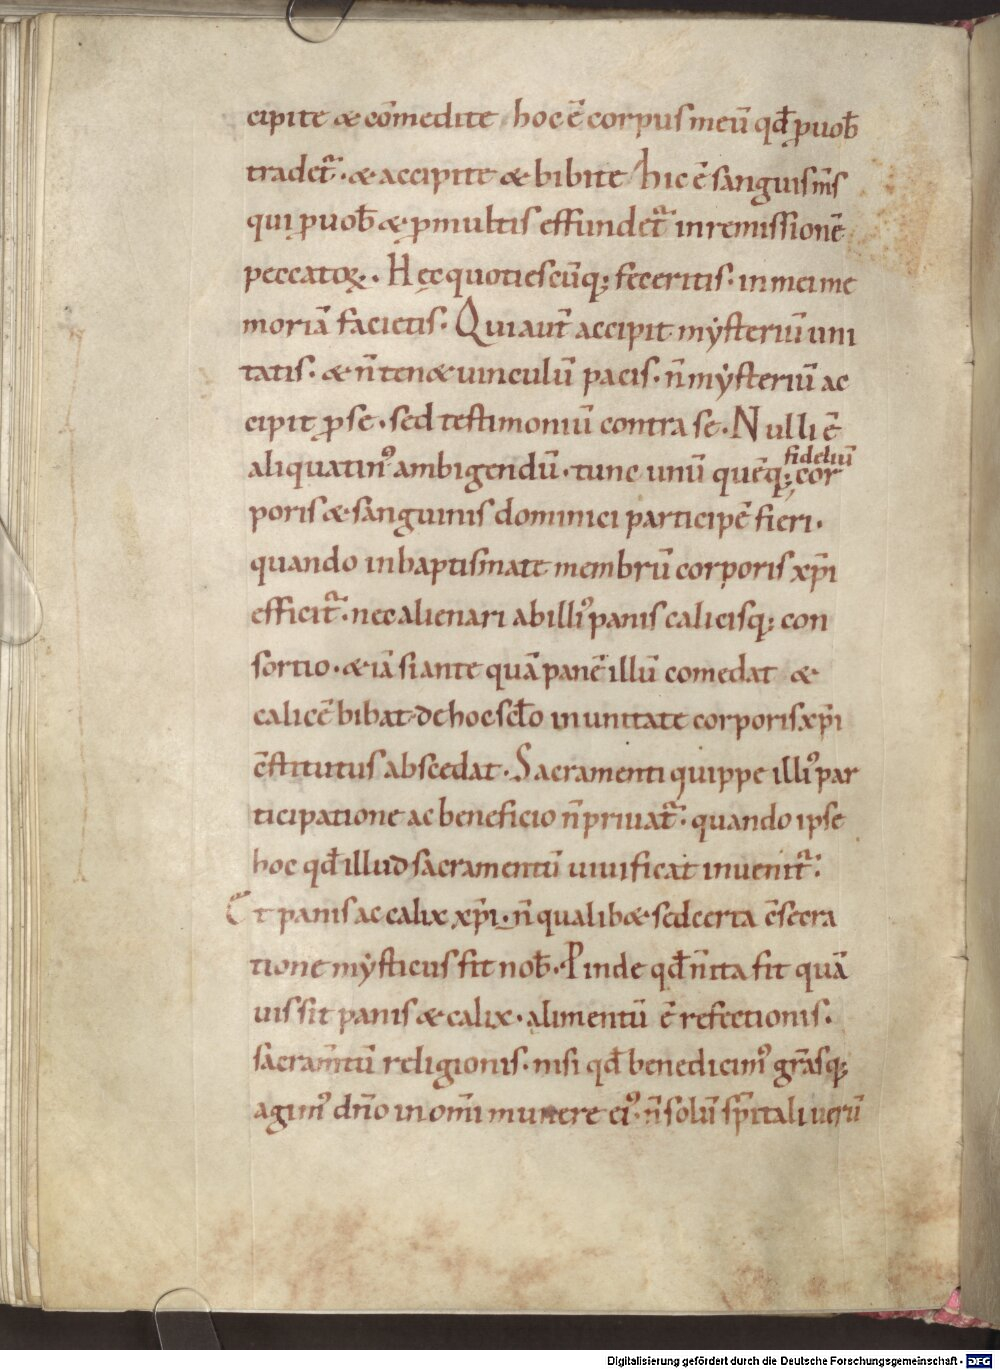 cipite & cōmedite hoc ē corpus meū qđ ꝑ uob̄
tradet᷒· & accipite & bibite hic ē sanguis m̄s
qui ꝑ uob̄ & ꝑ multis effundet᷒ in remissionē
peccatoꝝ·. Hęc quotiescūq; feceritis· in mei me
moriā facietis· Qui aut̄ accipit mẏsteriū uni
tatis· & n̄ ten& uinculū pacis· n̄ mẏsteriū ac
cipit ꝑ se· sed testimoniū contra se· Nulli ē
fideliū
aliquatin᾿ ambigendū· tunc unū quēq; cor
poris & sanguinis dominici participē fieri·
quando in baptismate membrū corporis xp̄i
efficit᷒· nec alienari ab illi᾿ panis calicisq; con
sortio· & iā si ante quā panē illū comedat &
calicē bibat de hoc sc̄lo in unitate corporis xp̄i
c̄stitutus abscedat· Sacramenti quippe illi᾿ par
ticipatione ac beneficio n̄ priuat᷒· quando ipse
hoc qđ illud sacramentū uiuificat inuenit᷒·
Et panis ac calix xp̄i· n̄ qualib& sed certa c̄secra
tione mẏsticus fit nob̄· Pinde qđ n̄ ita fit quā
uis sit panis & calix· alimentū ē refectionis·
sacram̄tū religionis· nisi qđ benedicim᾿ gr̄asq;
agim᾿ dn̄o in om̄i munere ei᾿· n̄ solū sp̄itali uerū
Digitalisierung gefördert durch die Deutsche Forschungsgemeinschaft - DFG